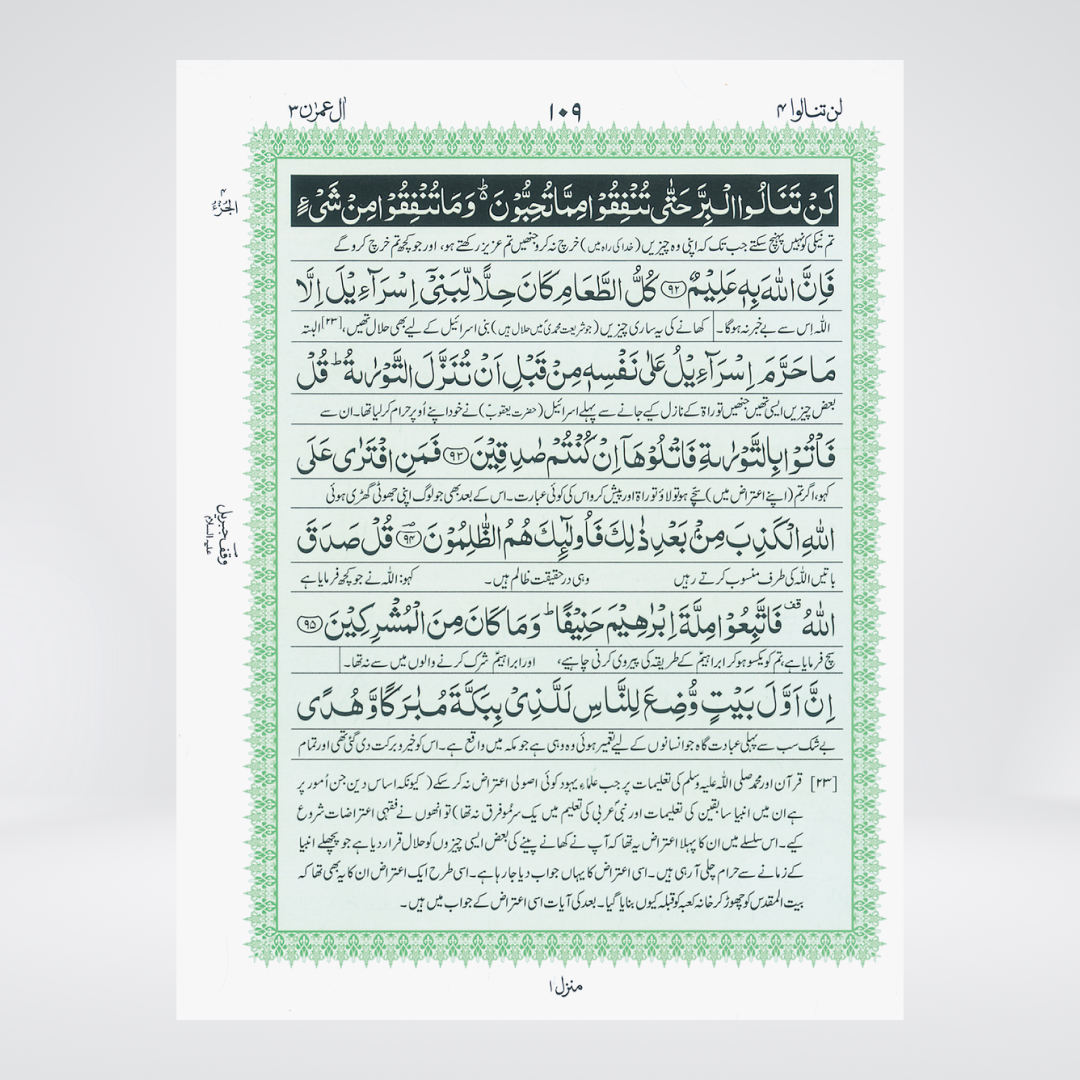 لن تنالوا ۴
۱۰۹
اٰل عمرٰن ۳
لَنْ تَنَالُوا الْبِرَّ حَتّٰى تُنْفِقُوْا مِمَّا تُحِبُّوْنَ ؕ وَمَا تُنْفِقُوْا مِنْ شَیْءٍ
الجزء ۴
تم نیکی کو نہیں پہنچ سکتے جب تک کہ اپنی وہ چیزیں (خدا کی راہ میں) خرچ نہ کرو جنھیں تم عزیز رکھتے ہو، اور جو کچھ تم خرچ کرو گے
فَاِنَّ اللّٰهَ بِهٖ عَلِیْمٌ ﴿۹۲﴾ كُلُّ الطَّعَامِ كَانَ حِلًّا لِّبَنِیْۤ اِسْرَآءِیْلَ اِلَّا
اللہ اِس سے بے خبر نہ ہوگا۔ کھانے کی یہ ساری چیزیں (جو شریعت محمدیؐ میں حلال ہیں) بنی اسرائیل کے لیے بھی حلال تھیں،[۲۳] البتہ
مَا حَرَّمَ اِسْرَآءِیْلُ عَلٰى نَفْسِهٖ مِنْ قَبْلِ اَنْ تُنَزَّلَ التَّوْرٰىةُ ؕ قُلْ
بعض چیزیں ایسی تھیں جنھیں توراۃ کے نازل کیے جانے سے پہلے اسرائیل (حضرت یعقوبؑ) نے خود اپنے اُوپر حرام کرلیا تھا۔ ان سے
فَاْتُوْا بِالتَّوْرٰىةِ فَاتْلُوْهَاۤ اِنْ كُنْتُمْ صٰدِقِیْنَ ﴿۹۳﴾ فَمَنِ افْتَرٰى عَلَى
کہو، اگر تم (اپنے اعتراض میں) سچے ہو تو لاؤ توراۃ اور پیش کرو اس کی کوئی عبارت۔ اس کے بعد بھی جو لوگ اپنی جھوٹی گھڑی ہوئی
اللّٰهِ الْكَذِبَ مِنْۢ بَعْدِ ذٰلِكَ فَاُولٰٓئِكَ هُمُ الظّٰلِمُوْنَ ﴿۹۴﴾ قُلْ صَدَقَ
وقف جبریل علیہ السلام
باتیں اللہ کی طرف منسوب کرتے رہیں وہی درحقیقت ظالم ہیں۔ کہو: اللہ نے جو کچھ فرمایا ہے
اللّٰهُ ۫ فَاتَّبِعُوْا مِلَّةَ اِبْرٰهِیْمَ حَنِیْفًا ؕ وَمَا كَانَ مِنَ الْمُشْرِكِیْنَ ﴿۹۵﴾
سچ فرمایا ہے، تم کو یکسو ہوکر ابراہیمؑ کے طریقہ کی پیروی کرنی چاہیے، اور ابراہیمؑ شرک کرنے والوں میں سے نہ تھا۔
اِنَّ اَوَّلَ بَیْتٍ وُّضِعَ لِلنَّاسِ لَلَّذِیْ بِبَكَّةَ مُبٰرَكًا وَّهُدًى
بے شک سب سے پہلی عبادت گاہ جو انسانوں کے لیے تعمیر ہوئی وہ وہی ہے جو مکہ میں واقع ہے۔ اس کو خیر و برکت دی گئی تھی اور تمام
[۲۳] قرآن اور محمد صلی اللہ علیہ وسلم کی تعلیمات پر جب علماء یہود کوئی اصولی اعتراض نہ کرسکے (کیونکہ اساس دین جن اُمور پر
ہے ان میں انبیا سابقین کی تعلیمات اور نبیؐ عربی کی تعلیم میں یک سرِ مُو فرق نہ تھا) تو انھوں نے فقہی اعتراضات شروع
کیے۔ اس سلسلے میں ان کا پہلا اعتراض یہ تھا کہ آپ نے کھانے پینے کی بعض ایسی چیزوں کو حلال قرار دیا ہے جو پچھلے انبیا
کے زمانے سے حرام چلی آرہی ہیں۔ اسی اعتراض کا یہاں جواب دیا جا رہا ہے۔ اسی طرح ایک اعتراض ان کا یہ بھی تھا کہ
بیت المقدس کو چھوڑ کر خانہ کعبہ کو قبلہ کیوں بنایا گیا۔ بعد کی آیات اسی اعتراض کے جواب میں ہیں۔
منزل ۱